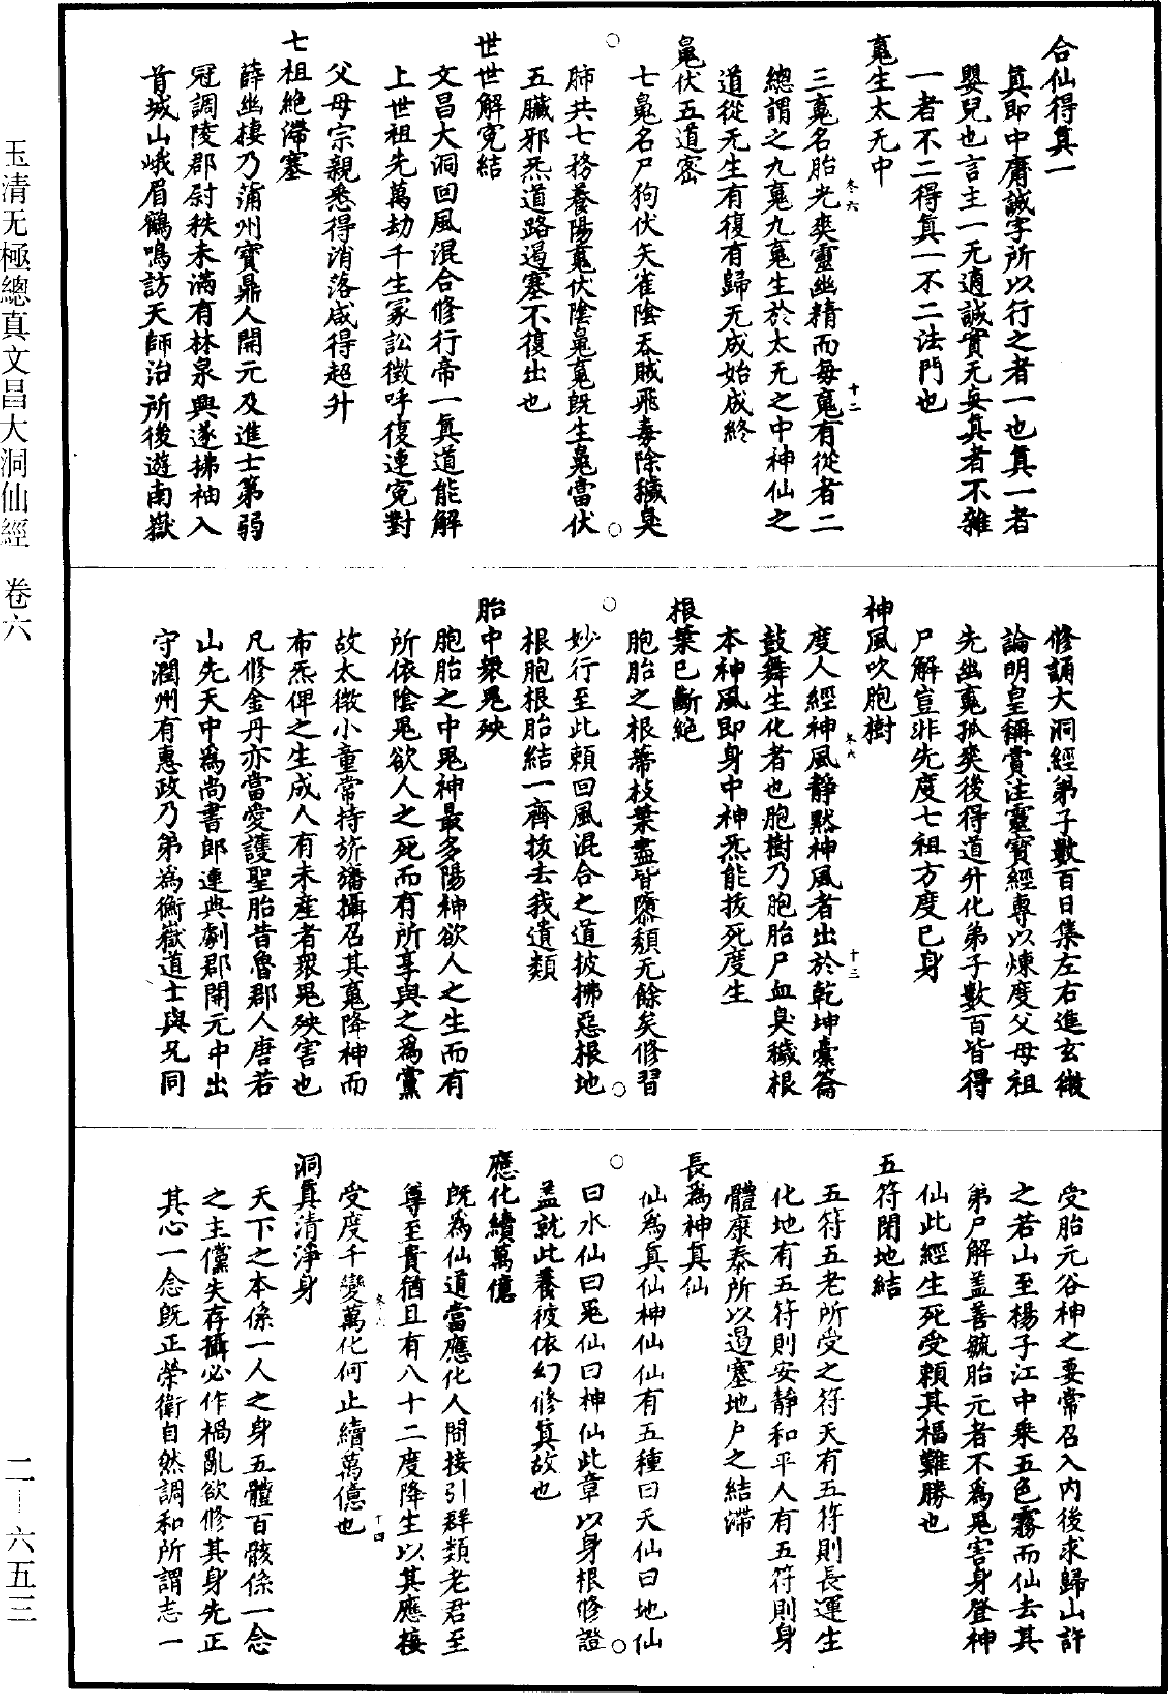 合仙得真一
真即中庸誠字所以行之者一也真一者
嬰兒也言主一无適誠實无妄真者不雜
一者不二得真一不二法門也
䰟生太无中
三䰟名胎光爽靈幽精而每䰟有從者二
總謂之九䰟九䰟生於太无之中神仙之
道從无生有復有歸无成始成終
鬽伏五道密
七鬽名尸狗伏矢雀陰吞賊飛毒除穢臭
肺共七務養陽䰟伏陰鬽䰟旣生鬽當伏
五臟邪炁道路遏塞不復出也
世世解寃結
文昌大洞回風混合修行帝一真道能解
上世祖先萬劫千生冡訟徵呼復連寃對
父母宗親悉得消落咸得超升
七祖絶滯塞
薛幽棲乃蒲州寶鼎人開元及進士第弱
冠調陵郡尉秩未滿有林泉興遂拂袖入
首城山峨眉鶴鳴訪天師治所後遊南嶽
修誦大洞經弟子數百日集左右進玄微
論明皇稱賞注靈寶經專以煉度父母祖
先幽䰟孤爽後得道升化弟子數百皆得
尸解豈非先度七祖方度已身
神風吹胞樹
度人經神風靜黙神風者出於乾坤橐籥
鼓舞生化者也胞樹乃胞胎尸血臭穢根
本神風即身中神炁能拔死度生
根葉已斷絶
胞胎之根蒂枝葉盡皆隳頹无餘矣修習
妙行至此頼回風混合之道披拂惡根地
根胞根胎結一齊拔去我遺類
胎中衆鬼殃
胞胎之中鬼神最多陽神欲人之生而有
所依陰鬼欲人之死而有所享與之爲黨
故太微小童常持旂旛攝召其䰟降神而
布炁俾之生成人有未産者衆鬼殃害也
凡修金丹亦當愛護聖胎昔魯郡人唐若
山先天中爲尚書郎連典劇郡開元中出
守潤州有惠政乃弟爲衡嶽道士與兄同
受胎元谷神之要常召入内後求歸山許
之若山至楊子江中乘五色霧而仙去其
弟尸解盖善毓胎元者不爲鬼害身登神
仙此經生死受頼其樞難勝也
五符閉地結
五符五老所受之符天有五符則長運生
化地有五符則安靜和平人有五符則身
體康泰所以遏塞地户之結滯
長爲神真仙
仙爲真仙神仙仙有五種曰天仙曰地仙
曰水仙曰鬼仙曰神仙此章以身根修證
盖就此養彼依幻修真故也
應化續萬億
旣爲仙道當應化人間接引群類老君至
尊至貴猶且有八十二度降生以其應接
受度千變萬化何止續萬億也
洞真清淨身
天下之本係一人之身五體百骸係一念
之主儻失存攝必作禍亂欲修其身先正
其心一念旣正榮衛自然調和所謂志一
玉清无極總真文昌大洞仙經　卷六
二—六五三